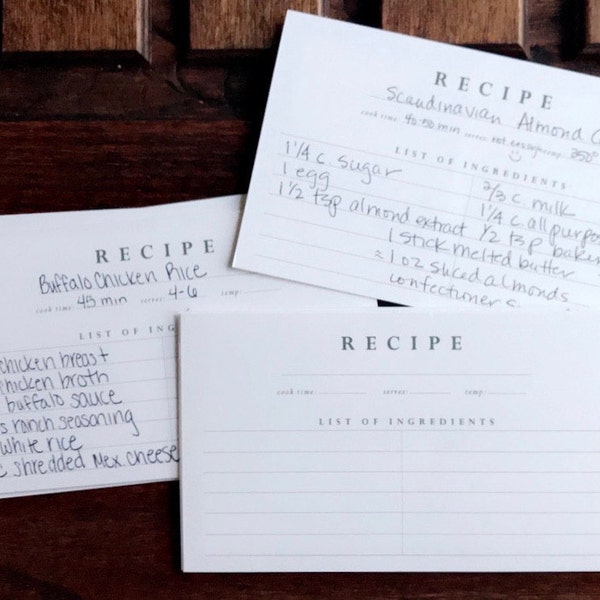 RECIPE
Scandinavian Almond
cook time: 40-50 min serves: not enough temp: 350°
LIST OF INGREDIENTS
1 1/4 c. sugar
1 egg
1 1/2 tsp almond extract
2/3 c. milk
1 1/4 c. all purpos
1/2 tsp bakin
1 stick melted butter
≈ 1 oz sliced almonds
confectioner s
RECIPE
Buffalo Chicken Rice
cook time: 45 min serves: 4-6 temp:
LIST OF INGR
chicken breast
chicken broth
buffalo sauce
s ranch seasoning
white rice
c shredded Mex. cheese
RECIPE
cook time: serves: temp:
LIST OF INGREDIENTS